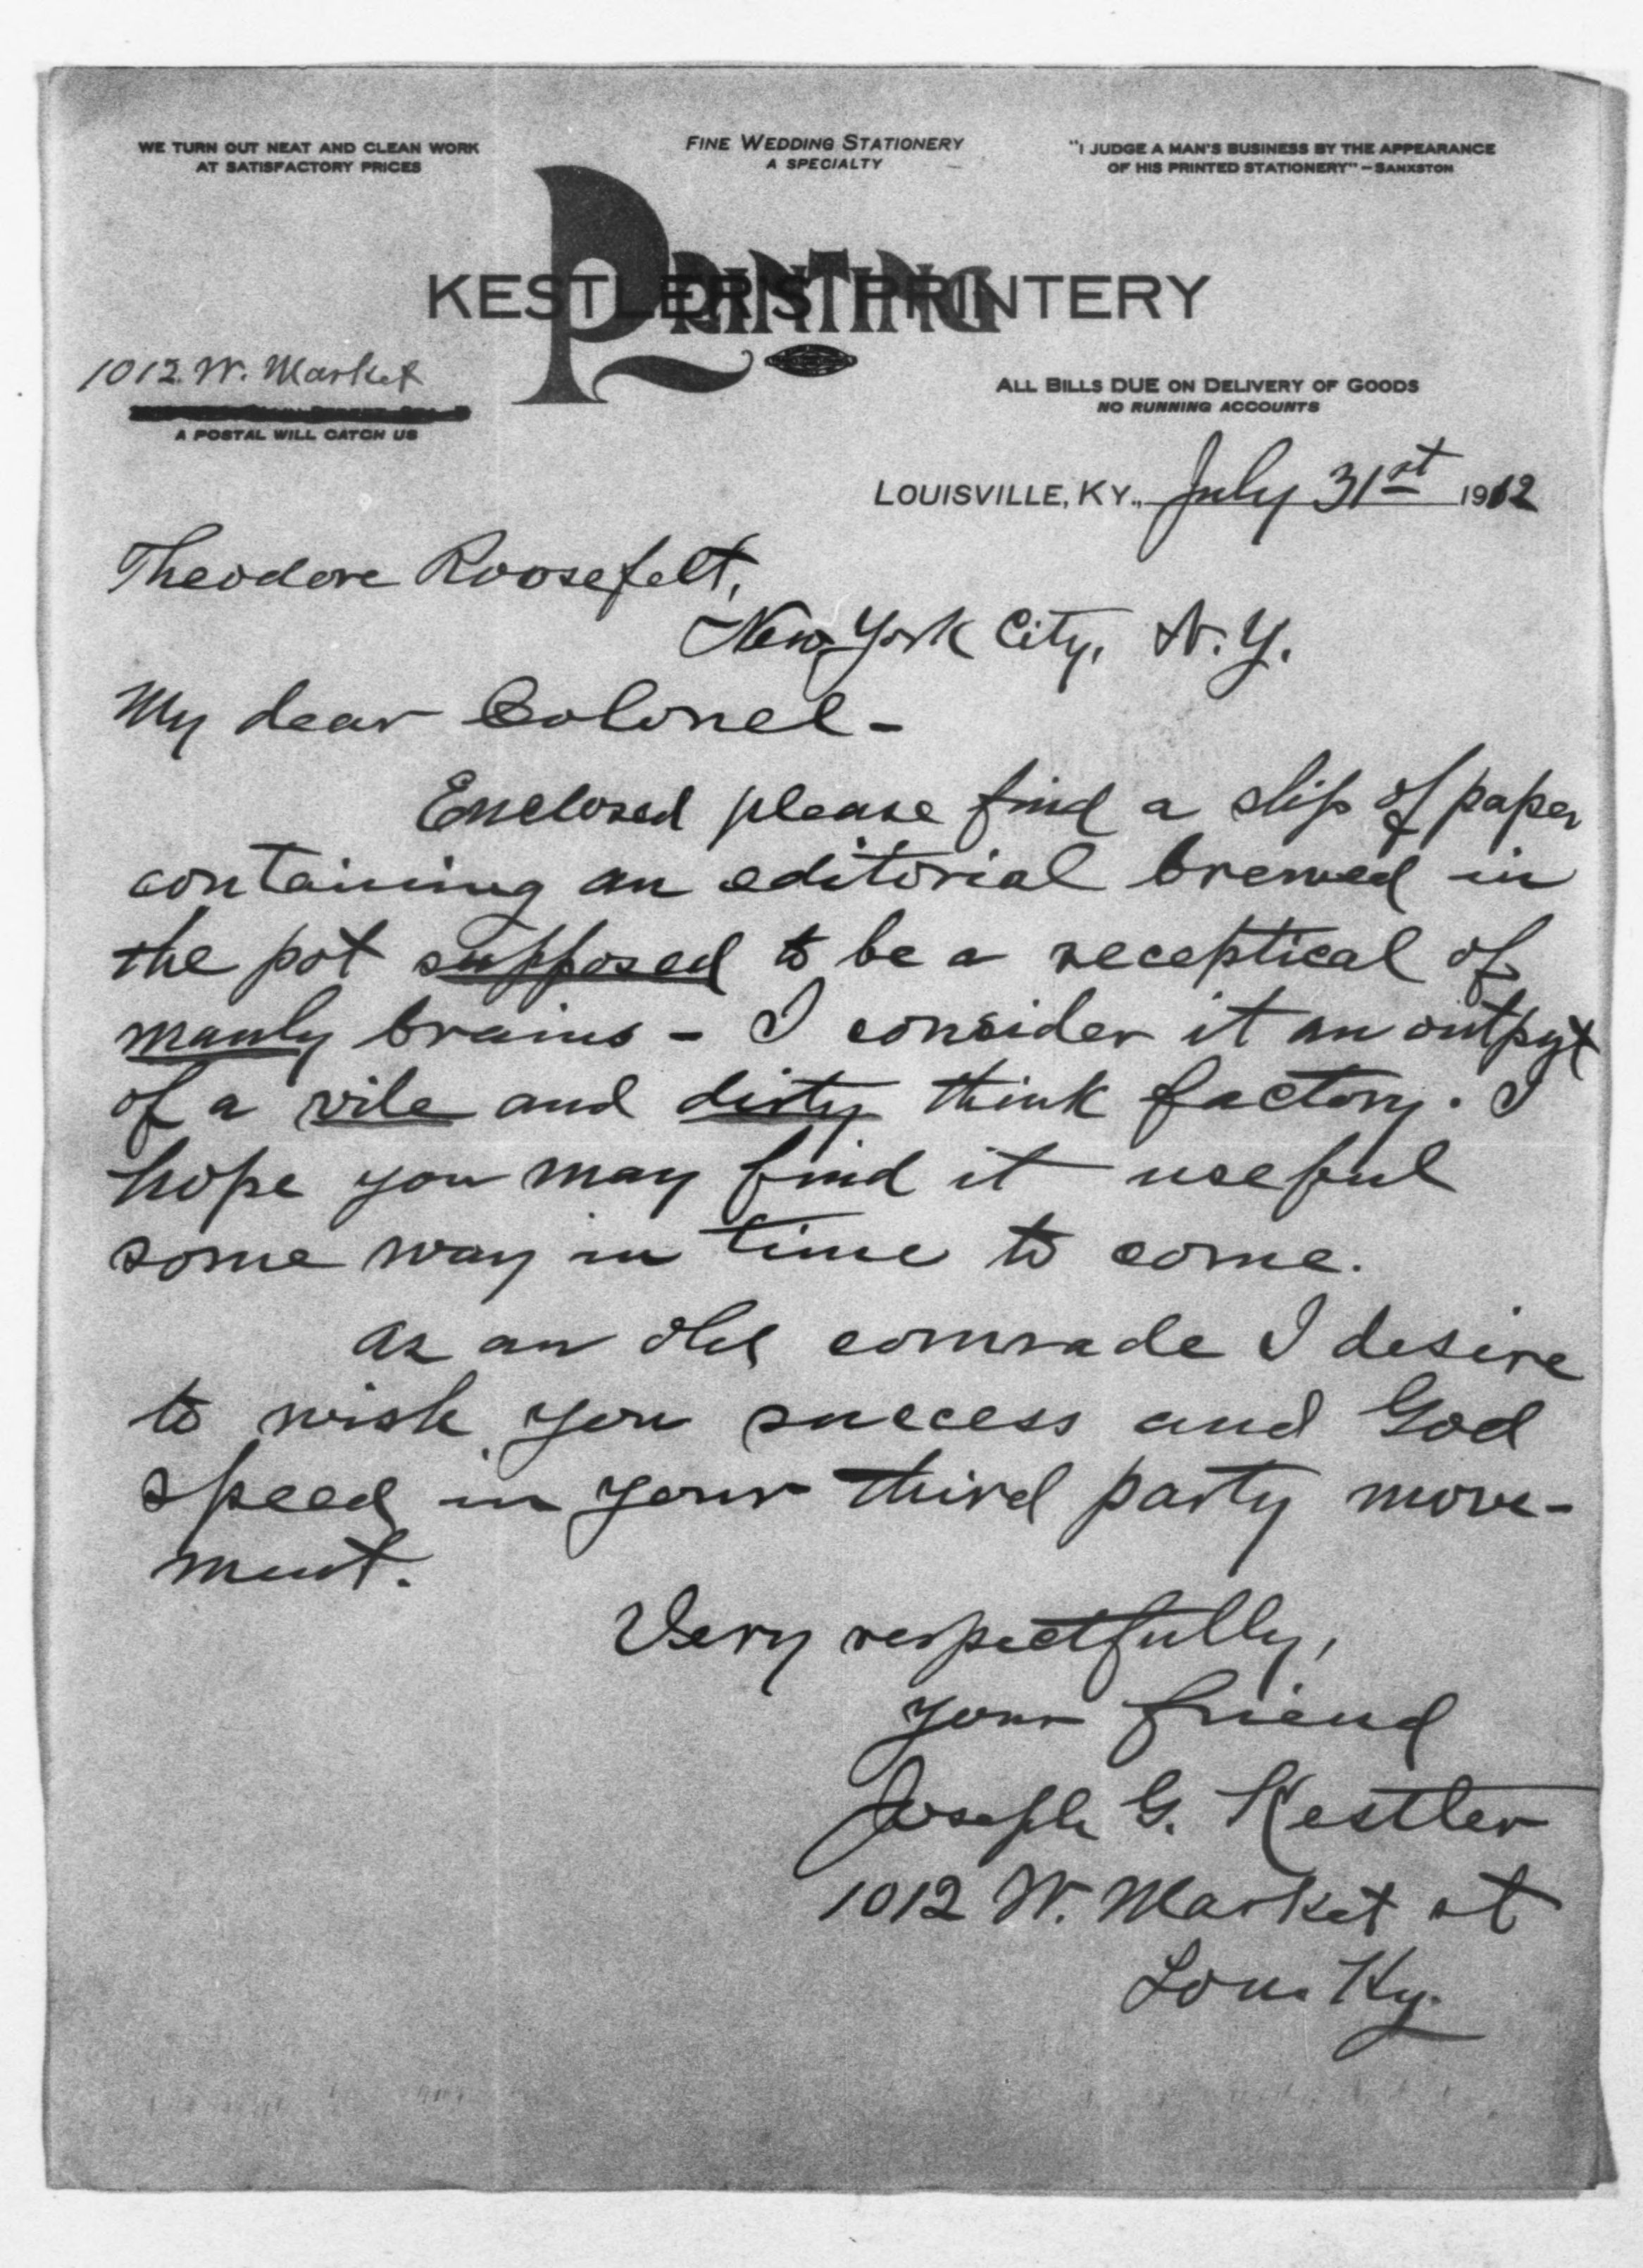 WE TURN OUT NEAT AND CLEAN WORK
AT SATISFACTORY PRICES
FINE WEDDING STATIONERY
A SPECIALTY
"I JUDGE A MAN'S BUSINESS BY THE APPEARANCE
OF HIS PRINTED STATIONERY"—SANXSTON
PRINTING
KESTLER'S PRINTERY
1012 W. Market
A POSTAL WILL CATCH US
ALL BILLS DUE ON DELIVERY OF GOODS
NO RUNNING ACCOUNTS
LOUISVILLE, KY., July 31st 1912
Theodore Roosefelt,
New York City, N.Y.
My dear Colonel-
Enclosed please find a slip of paper
containing an editorial brewed in
the pot supposed to be a receptical of
manly brains - I consider it an output
of a vile and dirty think factory. I
hope you may find it useful
some way in time to come.
As an old comrade I desire
to wish you success and God
speed in your third party move-
ment.
Very respectfully,
your friend
Joseph G. Kestler
1012 W. Market st
Lou. Ky.